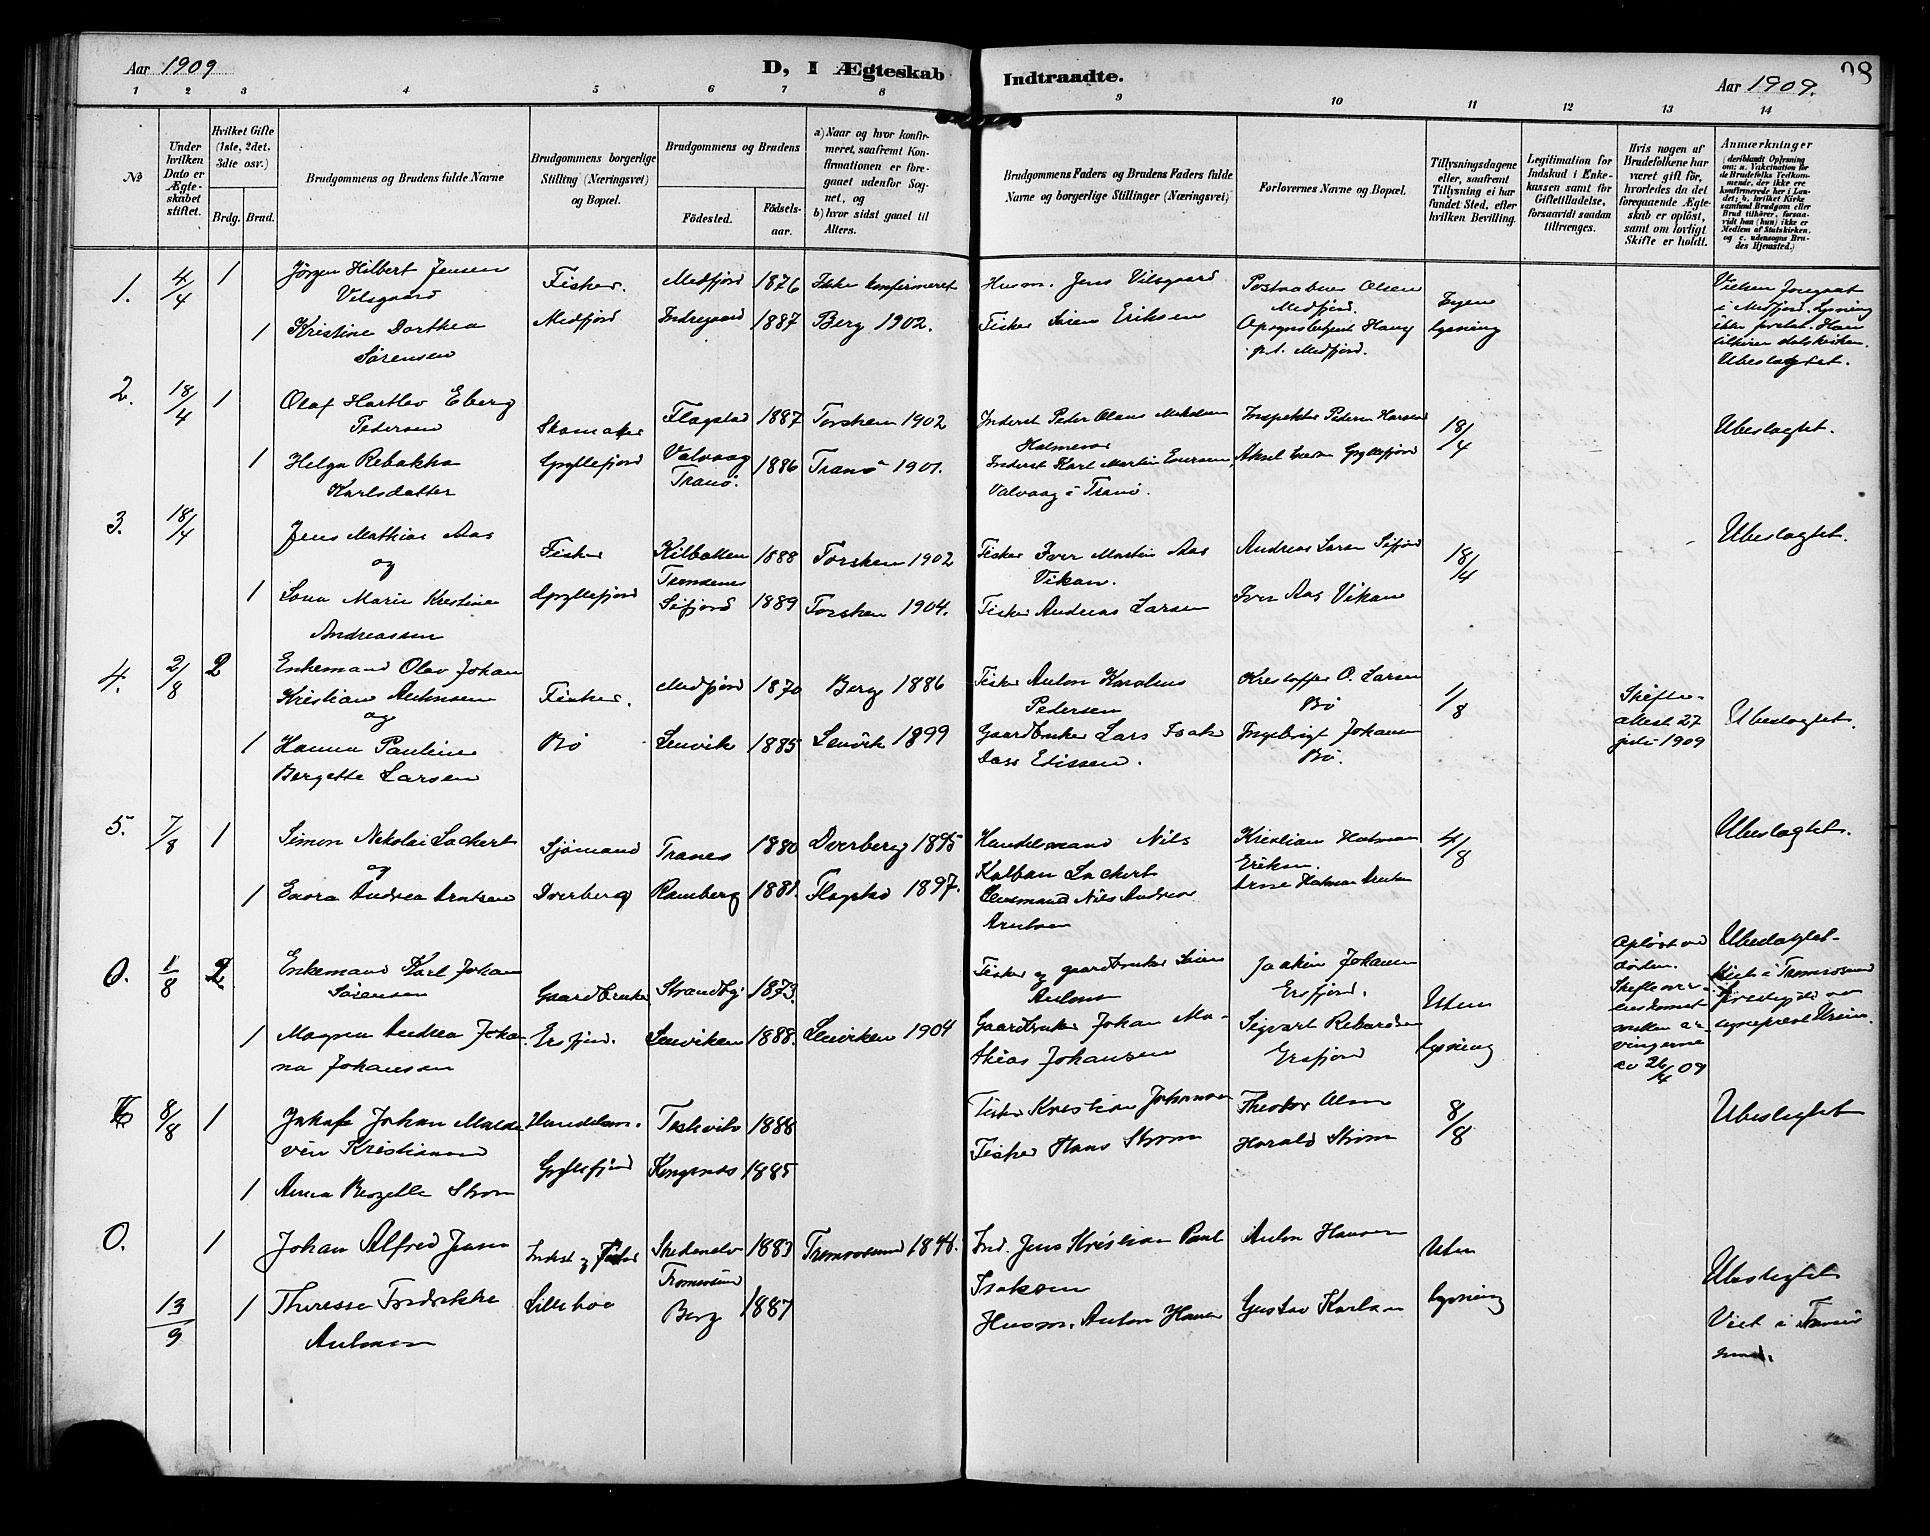 Aar 1909
D, I Ægteskab
Indtraadte.
Aar 1909.
98
1 2 3 4 5 6 7 8 9 10 11 12 13 14
No
Under hvilken Dato er Ægteskabet stiftet.
Hvilket Gifte (1ste, 2det, 3die osv.)
Brdg. Brud.
Brudgommens og Brudens fulde Navne
Brudgommens borgerlige Stilling (Næringsvei) og Bopæl.
Brudgommens og Brudens
Fødested.
Fødselsaar.
a) Naar og hvor konfirmeret, saafremt Konfirmationen er foregaaet udenfor Sognet, og
b) hvor sidst gaaet til Alters.
Brudgommens Faders og Brudens Faders fulde Navne og borgerlige Stillinger (Næringsvei)
Forlovernes Navne og Bopæl.
Tillysningsdagene eller, saafremt Tillysning ei har fundet Sted, efter hvilken Bevilling.
Legitimation for Indskud i Enkekassen samt for Giftetilladelse, forsaavidt saadan tiltrænges.
Hvis nogen af Brudefolkene har været gift før, hvorledes da det foregaaende Ægteskab er opløst, samt om lovligt Skifte er holdt.
Anmærkninger
(deriblandt Oplysning om: a. Vakcination for de Brudefolks Vedkommende, der ikke ere konfirmerede her i Landet; b. hvilket Kirkesamfund Brudgom eller Brud tilhører, forsaavidt han (hun) ikke er Medlem af Statskirken, og c. udensogns Brudes Hjemsted.)
1. 4/4 1 Jörgen Hilbert Jensen Fisker. Medfjord 1876 Ikke konfirmeret Husm. Jens Vilsgaard Postaabner Olsen Ingen
Vilsgaard Medfjord.
1 Kristine Dorthea Medfjord Indregaard 1887 Berg 1902. Fisker Sören Eriksen lysning
Sørensen p.t. Medfjord.
Vielsen foregaat i Medfjord. Lysning ikke
Ubeslagtet.
2. 18/4 1 Olaf Hartlev Eberg Flagstad 1887 Torsken 1902 Inderst Peder Olaus 18/4 Ubeslagtet.
Pedersen Skomaker
1 Helga Rebakka Gryllefjord Valvaag 1886 Tranö 1901. Inderst Karl Martin
Karlsdatter Tranö. Valvaag i Tranö.
3. 18/4 Jens Mathias Aas Fisker Kilbotten 1888 Torsken 1902 Fisker Iver Martin Aas Andreas Larsen Sifjord 18/4 Ubeslagtet.
og Vikan.
1 Marie Kristine Gryllefjord Sifjord 1889 Torsken 1904. Fisker Andreas Larsen Iver Aas Vikan
Andreassen
4. 2/8 2 Enkemand Olav Johan Medfjord 1870 Berg 1886 Fisker Anton Karolius Kristoffer O. Larsen 1/8 Skifteattest 27 juli 1909 Ubeslagtet.
Kristian Antonsen Fisker. Pedersen Bö
og
1 Hanna Pauline Bö Lenvik 1885 Lenvik 1899 Gaardbruker Lars Isak Ingebrigt Johansen
Bergette Larsen Bö.
5. 7/8 1 Simon Nikolai Lockert Sjömand Tranes 1880 Dverberg 1895 Handelsmand Nils Kristian Hotman 4/8 Ubeslagtet.
og Kolban Lockert Eriksen.
1 Enora Andrea Arntsen Dverberg Ramberg 1881. Flagstad 1897. Nils Andreas
Arntsen
0. 1/8 2 Enkemand Karl Johan Strandby 1873. Fisker og gaardbruker Sören Joakim Johansen Opløst ved döden. Ubeslagtet.
Sörensen Gaardbruker Antonsen Ersfjord. Uten
1 Magna Andrea Johanna Johansen Ersfjord. Lenviken 1888. Lenviken 1904 Gaardbruker Johan Mathias Johansen Sigvart Ersfjord lysning av 26/4 09
8/8 1 Jakob Johan Kristiansen Handelsm. 1888 Fisker Kristian Johansen Theodor Olsen 8/8 Ubeslegtet
1 Anna Bergette Strøm Gryllefjord 1885 Fisker Hans Strøm Harald Strøm
0. 1 Johan Alfred Jensen Inderst og Fisker 1883 Tromsösund 1898. Ind. Jens Kristian Paul Anton Hansen Uten Ubeslegtet
Isaksen
13/9 1 Theresse Fredrikke Berg 1887 Husm. Anton Hansen Gustav Karlsen lysning Viet i Tromsösund.
Antonsen